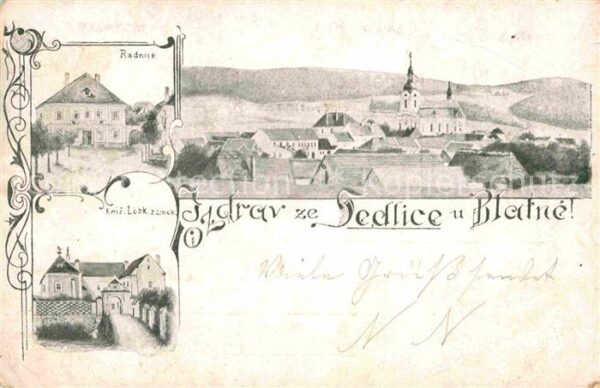 Radnice
Kníž. Lobk. zámek.
Pozdrav ze Sedlice u Blatné!
Viele Grüße sendet
N N